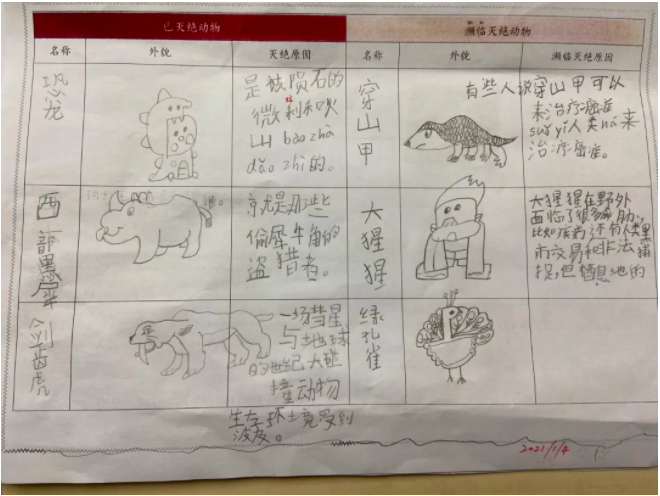 已灭绝动物
濒临灭绝动物
名称
外貌
灭绝原因
名称
外貌
濒临灭绝原因
恐龙
是被陨石的
微利和火
山bàozhà
dǎo zhì的。
穿山甲
有些人说穿山甲可以
来治疗癌症
suǒ yǐ人类ná来
治疗癌症。
西部黑犀
京尤是那些
偷犀牛角的
盗猎者。
大猩猩
大猩猩在野外
面临了很多威胁,
比如疾病还有人类黑
市交易和非法捕
捉,但栖息地的
剑齿虎
一场彗星
与地球
的世纪大碰
撞动物
生存环境受到
波及。
绿孔雀
2021/1/4